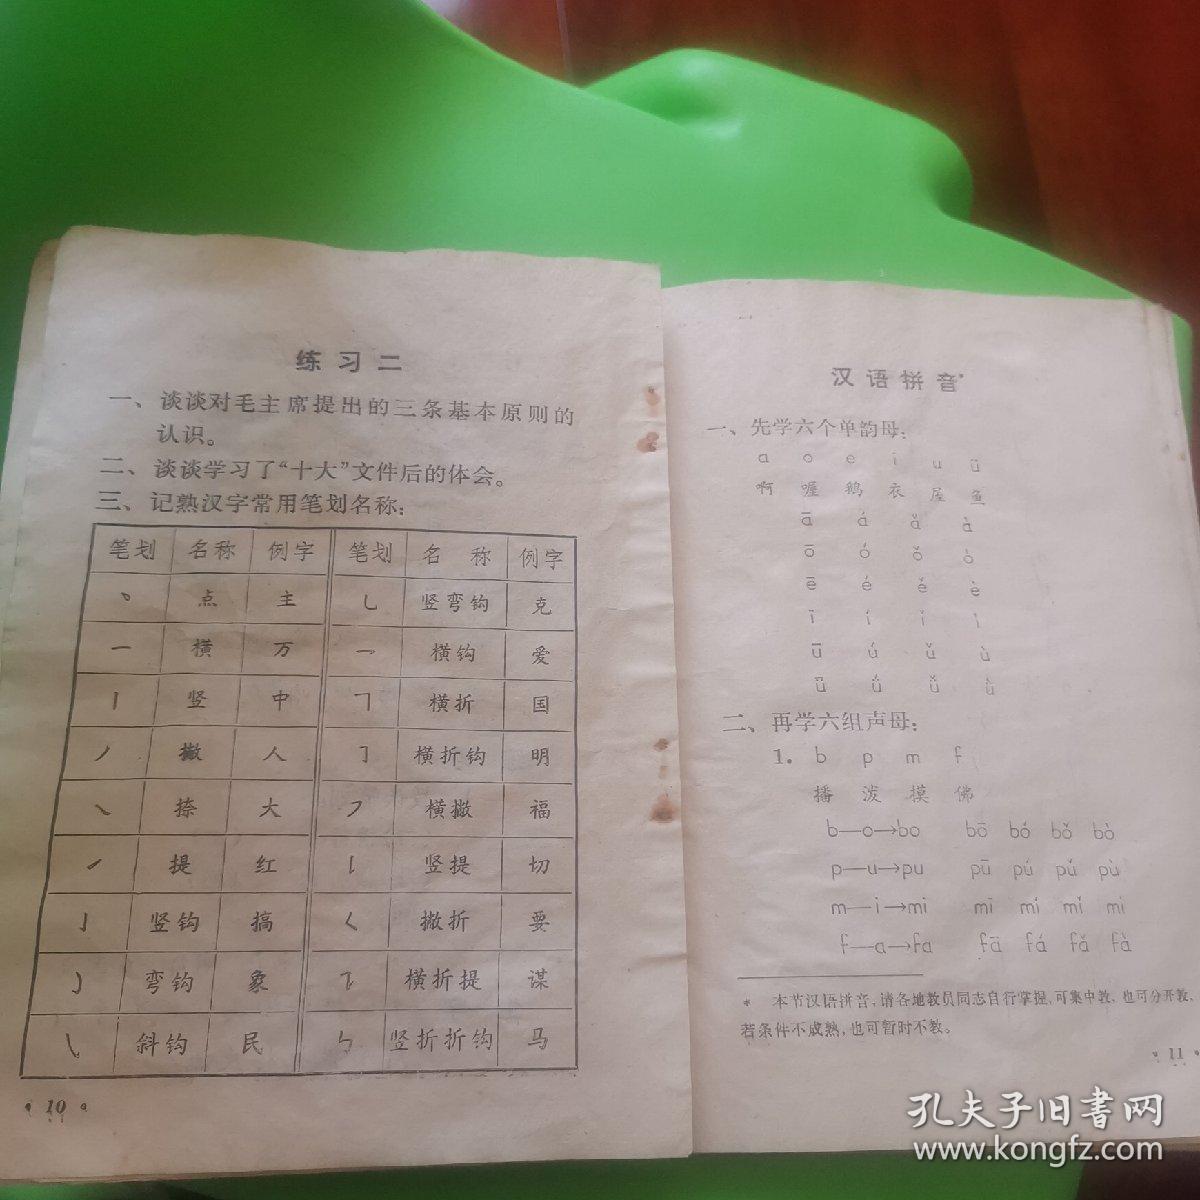 练习二
一、谈谈对毛主席提出的三条基本原则的
认识。
二、谈谈学习了“十大”文件后的体会。
三、记熟汉字常用笔划名称：
笔划 名称 例字 笔划 名称 例字
丶 点 主 乚 竖弯钩 克
一 横 万 乛 横钩 爱
丨 竖 中 𠃍 横折 国
丿 撇 人 𠃌 横折钩 明
㇏ 捺 大 ㇇ 横撇 福
㇀ 提 红 𠄌 竖提 切
亅 竖钩 搞 𡿨 撇折 要
㇁ 弯钩 象 ㇊ 横折提 谋
㇂ 斜钩 民 ㇉ 竖折折钩 马
• 10 •
汉语拼音*
一、先学六个单韵母：
a o e i u ü
啊 喔 鹅 衣 屋 鱼
ā á ǎ à
ō ó ǒ ò
ē é ě è
ī í ǐ ì
ū ú ǔ ù
ǖ ǘ ǚ ǜ
二、再学六组声母：
1. b p m f
播 泼 摸 佛
b—o→bo bō bó bǒ bò
p—u→pu pū pú pǔ pù
m—i→mi mī mí mǐ mì
f—a→fa fā fá fǎ fà
* 本节汉语拼音，请各地教员同志自行掌握，可集中教，也可分开教，
若条件不成熟，也可暂时不教。
• 11 •
孔夫子旧书网
www.kongfz.com